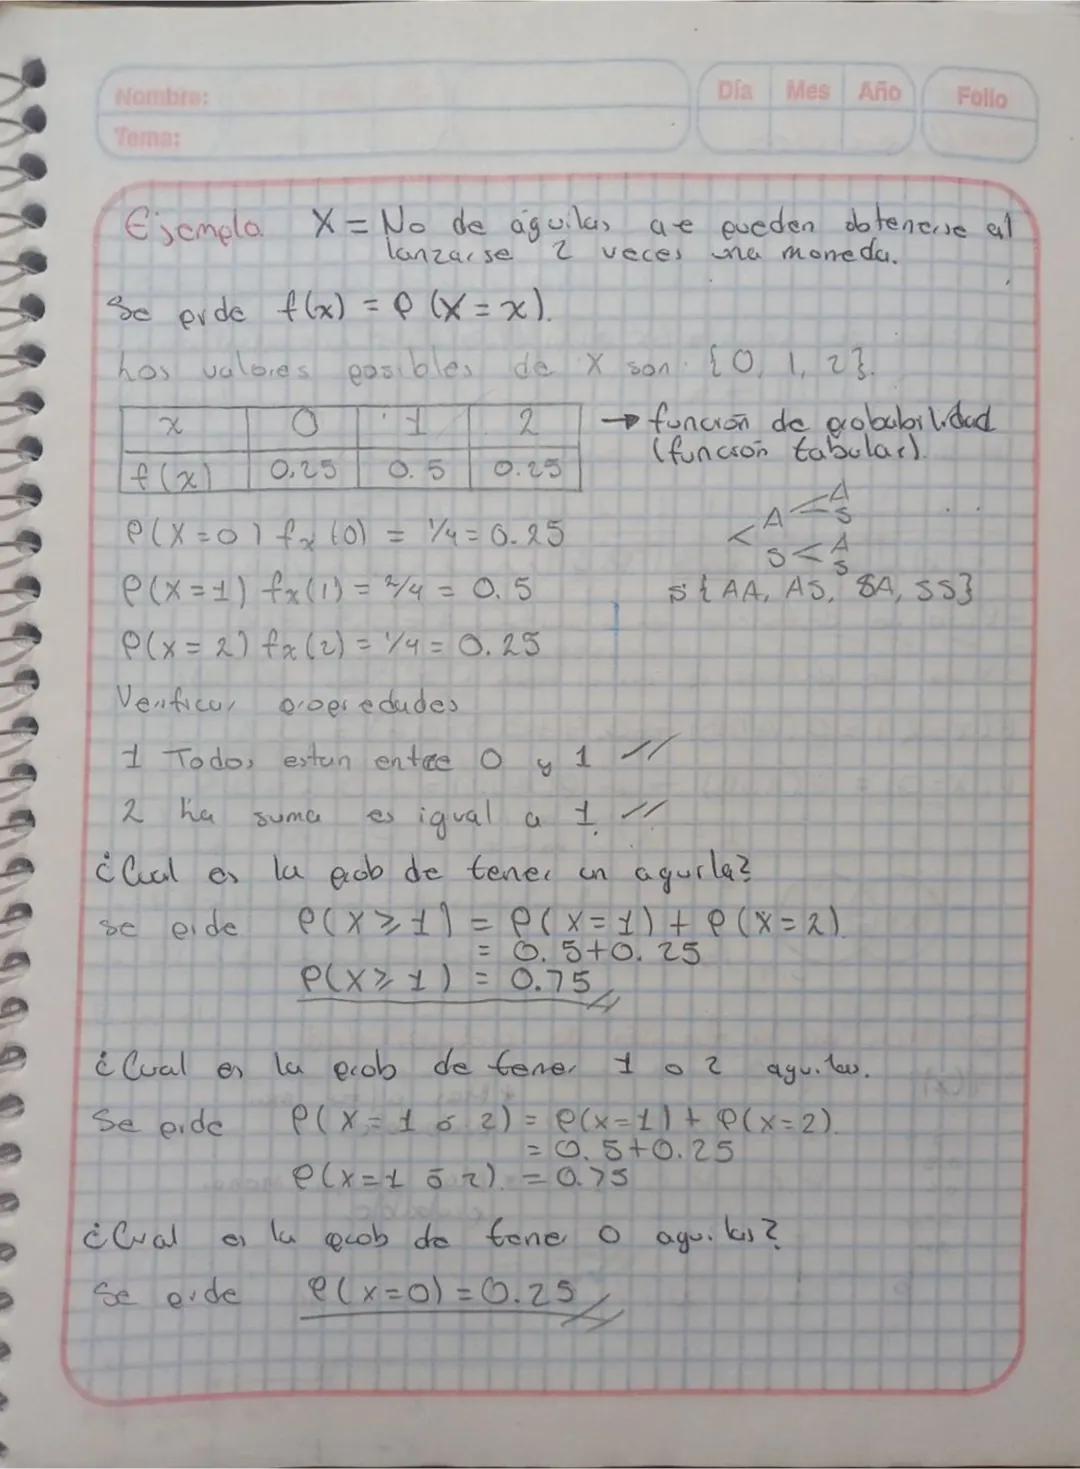 Nombre:
Tema:
Día Mes Año Folio
Ejemplo X = No de águilas que pueden obtenerse al
lanzarse 2 veces una moneda.
Se pide f(x) = P(X = x).
Los valores posibles de X son {0, 1, 2}.
x 0 1 2
f(x) 0.25 0.5 0.25
→ función de probabilidad
(función tabular).
P(X=0) fx(0) = 1/4 = 0.25
P(X=1) fx(1) = 2/4 = 0.5
P(x=2) fx(2) = 1/4 = 0.25
< A < A
S
S < A
S
S{AA, AS, SA, SS}
Verificar propiedades
1 Todos estan entre 0 y 1 //
2 La suma es igual a 1. //
¿Cual es la prob de tener un aguila?
se pide P(X⩾1) = P(X=1) + P(X=2).
= 0.5+0.25
P(X⩾1) = 0.75 //
¿Cual es la prob de tener 1 o 2 aguilas.
Se pide P(X=1 ó 2) = P(x=1) + P(x=2).
= 0.5+0.25
P(X=1 ó 2). = 0.75
¿Cual es la prob de tener 0 aguilas?
Se pide P(x=0) = 0.25 //